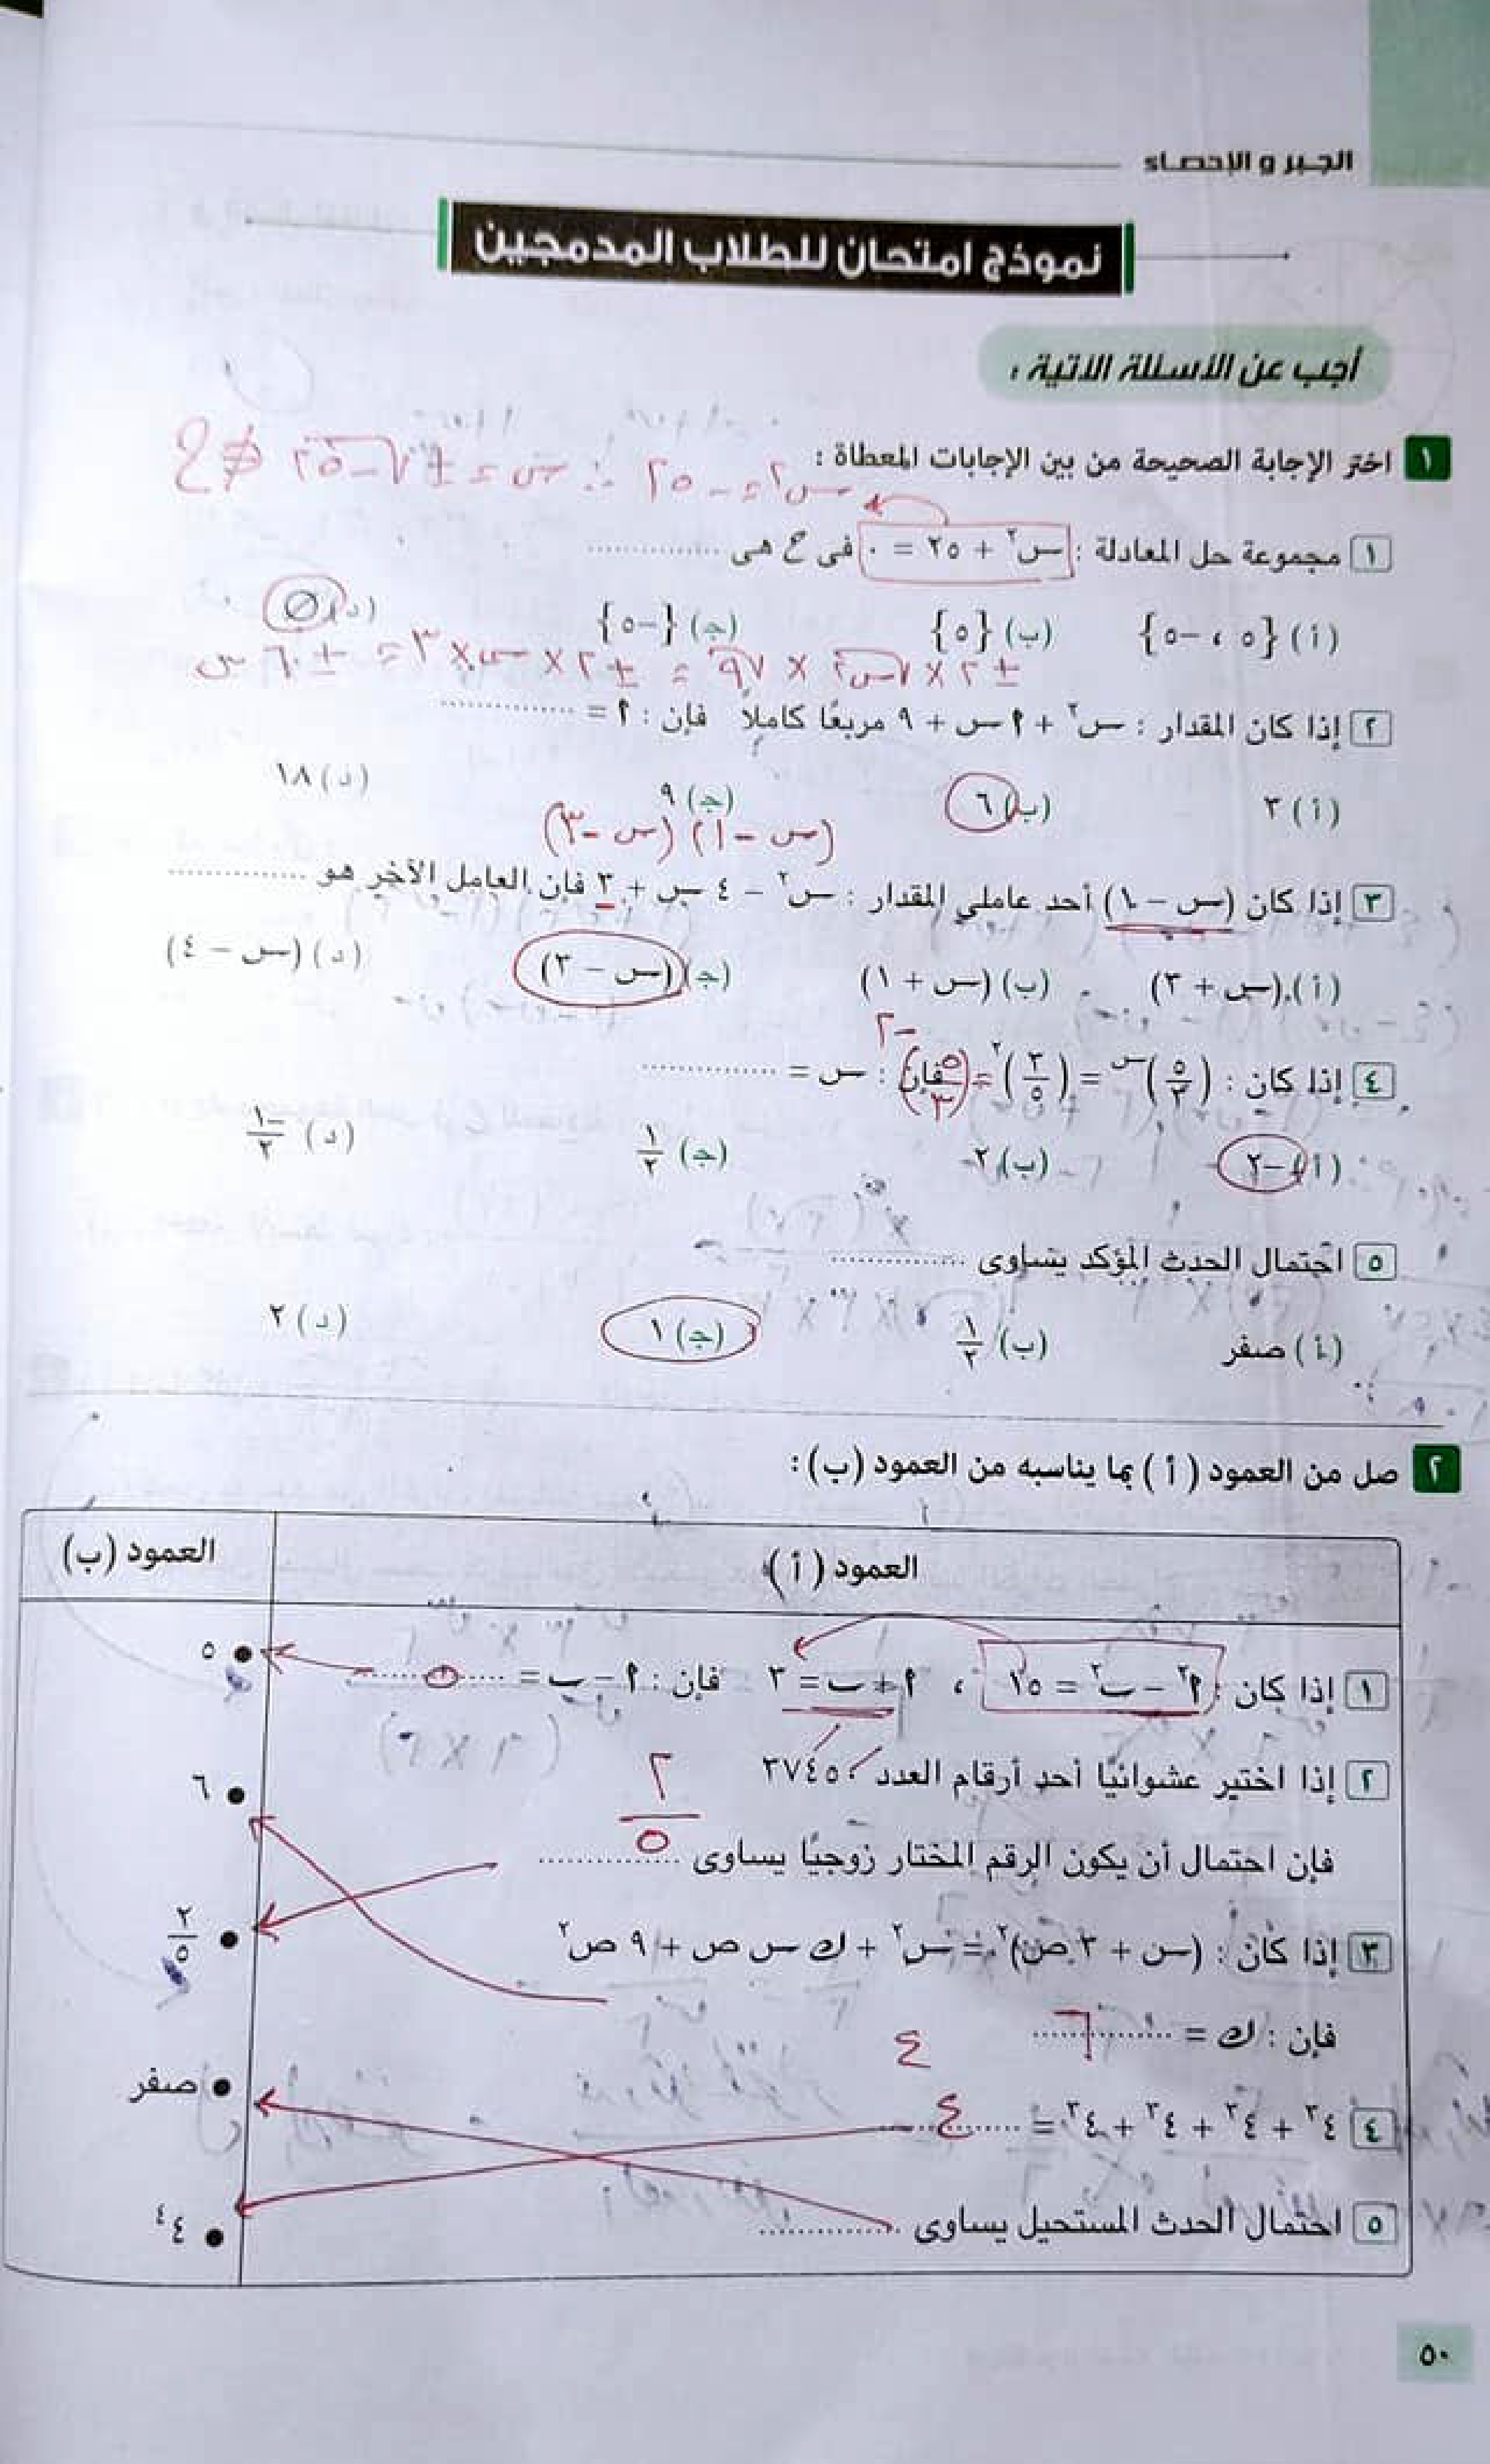 الجبر و الإحصاء
نموذج امتحان للطلاب المدمجين
أجب عن الأسئلة الآتية :
١ اختر الإجابة الصحيحة من بين الإجابات المعطاة :
س٢ = -٢٥ ∴ س = ± √-٢٥ ∉ ح
١ مجموعة حل المعادلة : س٢ + ٢٥ = ٠ فى ح هى ..............
(أ) {٥ ، -٥} (ب) {٥} (جـ) {-٥} (د) ∅
± ٢ × √س٢ × √٩ = ± ٢ × س × ٣ = ± ٦ س
٢ إذا كان المقدار : س٢ + ٩ س + ٩ مربعًا كاملاً فإن : ٩ = ..............
(أ) ٣ (ب) ٦ (جـ) ٩ (د) ١٨
(س - ١) (س - ٣)
٣ إذا كان (س - ١) أحد عاملي المقدار : س٢ - ٤ س + ٣ فإن العامل الآخر هو ..............
(أ) (س + ٣) (ب) (س + ١) (جـ) (س - ٣) (د) (س - ٤)
٤ إذا كان : (٥/٣)س = (٣/٥)٢ = (٥/٣)-٢ فإن : س = ..............
(أ) -٢ (ب) ٢ (جـ) ١/٢ (د) -١/٢
٥ احتمال الحدث المؤكد يساوى ..............
(أ) صفر (ب) ١/٢ (جـ) ١ (د) ٢
٢ صل من العمود (أ) بما يناسبه من العمود (ب) :
العمود (أ) العمود (ب)
١ إذا كان : ٩٢ - ب٢ = ١٥ ، ٩ + ب = ٣ فإن : ٩ - ب = ..... ٥ ..... • ٥
٢ إذا اختير عشوائيًا أحد أرقام العدد ٣٧٤٥٢ • ٦
فإن احتمال أن يكون الرقم المختار زوجيًا يساوى .............. ٢/٥
٣ إذا كان : (س + ٣ ص)٢ = س٢ + ك س ص + ٩ ص٢ • ٢/٥
فإن : ك = ..... ٦ .....
٤ ٤٣ + ٤٣ + ٤٣ + ٤٣ = ..... ٤٤ • صفر
٥ احتمال الحدث المستحيل يساوى .............. • ٤٤
٥٠